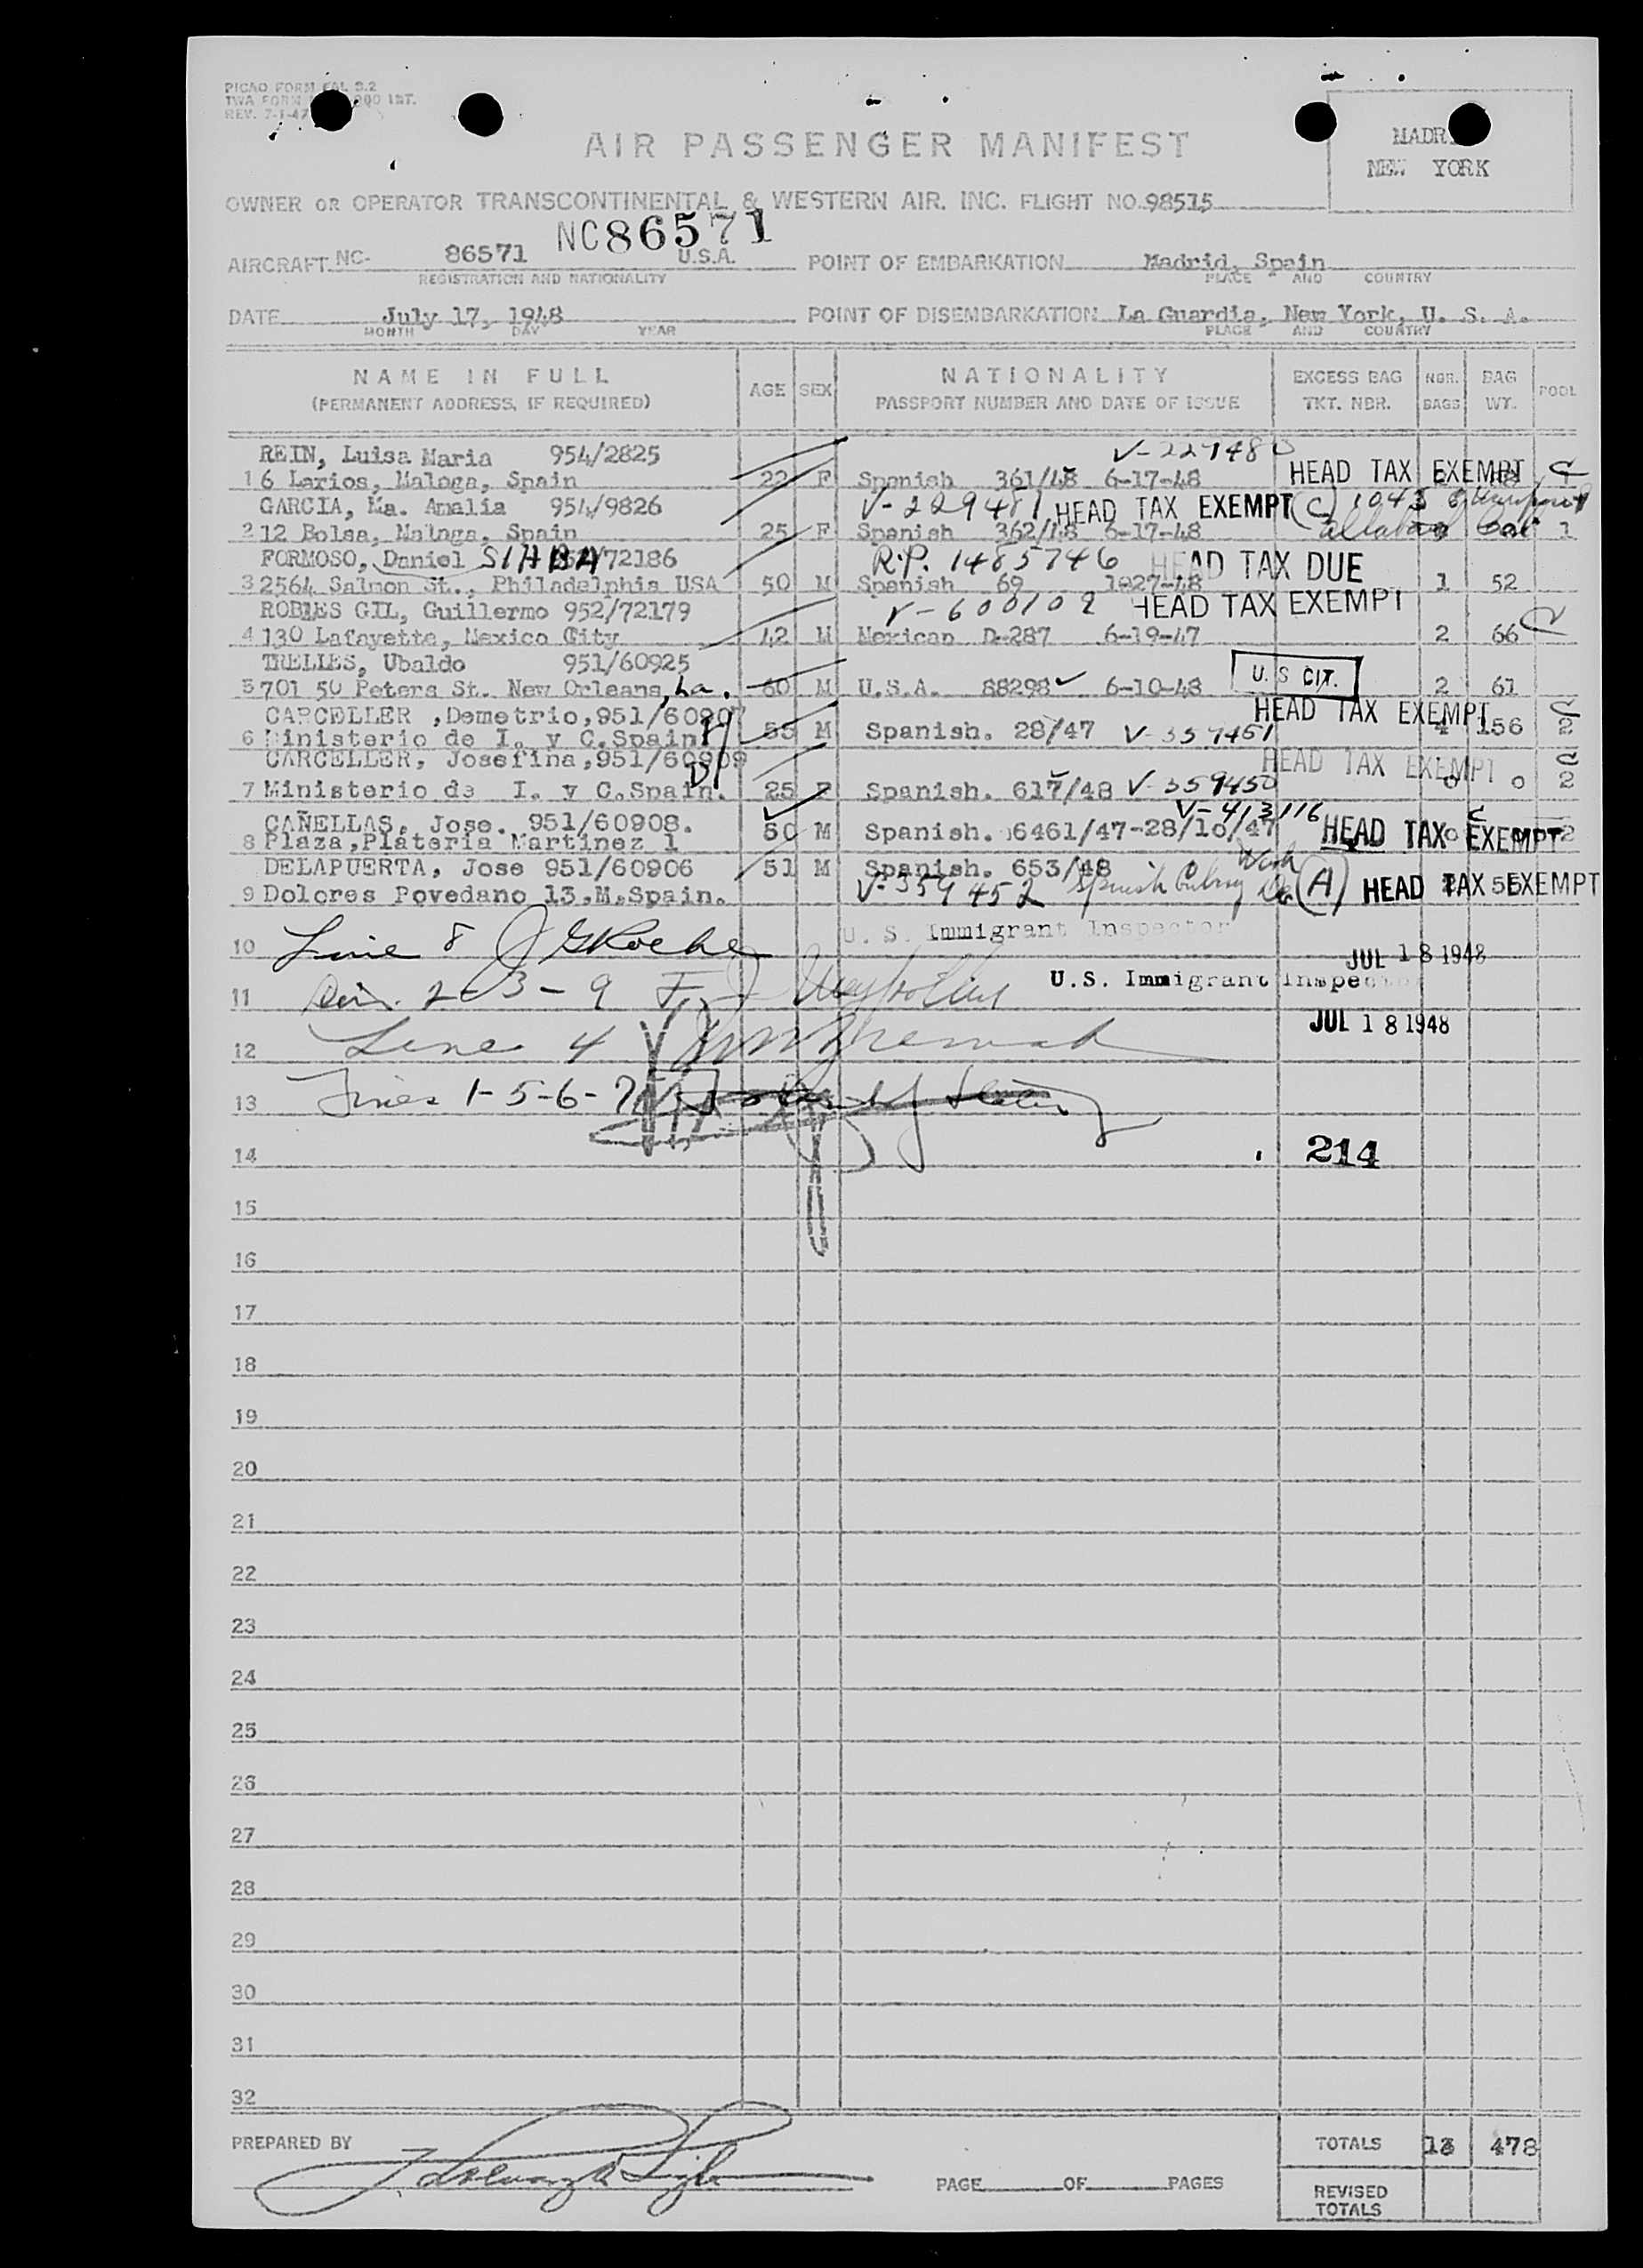 PICAO FORM FAL 3.2
TWA FORM 200 INT.
REV. 7-1-47
MADR
NEW YORK
AIR PASSENGER MANIFEST
OWNER OR OPERATOR TRANSCONTINENTAL & WESTERN AIR, INC. FLIGHT NO. 98515
NC86571
AIRCRAFT NC- 86571 U.S.A. POINT OF EMBARKATION Madrid, Spain
REGISTRATION AND NATIONALITY PLACE AND COUNTRY
DATE July 17, 1948 POINT OF DISEMBARKATION La Guardia, New York, U. S. A.
MONTH DAY YEAR PLACE AND COUNTRY
NAME IN FULL AGE SEX NATIONALITY EXCESS BAG NBR. BAG POOL
(PERMANENT ADDRESS, IF REQUIRED) PASSPORT NUMBER AND DATE OF ISSUE TKT. NBR. BAGS WT.
REIN, Luisa Maria 954/2825 V-229480
1 6 Larios, Malaga, Spain 22 F Spanish 361/48 6-17-48 HEAD TAX EXEMPT
GARCIA, Ma. Amalia 954/9826 V-229481 HEAD TAX EXEMPT (C) 1043
2 12 Bolsa, Malaga, Spain 25 F Spanish 362/48 6-17-48 1
FORMOSO, Daniel 72186 R.P. 1485746 HEAD TAX DUE
3 2564 Salmon St., Philadelphia USA 50 M Spanish 69 1027-48 1 52
ROBLES GIL, Guillermo 952/72179 V-600109 HEAD TAX EXEMPT
4 130 Lafayette, Mexico City 42 M Mexican D-287 6-19-47 2 66 C
TRELLES, Ubaldo 951/60925 U.S CIT.
5 701 50 Peters St. New Orleans, La. 60 M U.S.A. 88298 6-10-48 2 61
CARCELLER ,Demetrio,951/60907 HEAD TAX EXEMPT C
6 Ministerio de I. y C.Spain. 55 M Spanish. 28/47 V-359451 4 156 2
CARCELLER, Josefina,951/60909 HEAD TAX EXEMPT C
7 Ministerio de I. y C.Spain. 25 F Spanish. 617/48 V-359450 0 0 2
CAÑELLAS, Jose. 951/60908. V-413116 C
8 Plaza,Plateria Martinez 1 50 M Spanish. 6461/47-28/10/47 HEAD TAX EXEMPT 2
DELAPUERTA, Jose 951/60906 51 M Spanish. 653/48 Wash
9 Dolores Povedano 13,M.Spain. V-359452 Spanish (A) HEAD TAX EXEMPT
U. S. Immigrant Inspector
10 Line 8 J G Roche JUL 18 1948
11 Lin. 2-3-9 U.S. Immigrant Inspector
JUL 18 1948
12 Line 4
13 Lines 1-5-6-7
14 214
15
16
17
18
19
20
21
22
23
24
25
26
27
28
29
30
31
32
PREPARED BY TOTALS 13 478
PAGE OF PAGES REVISED
TOTALS